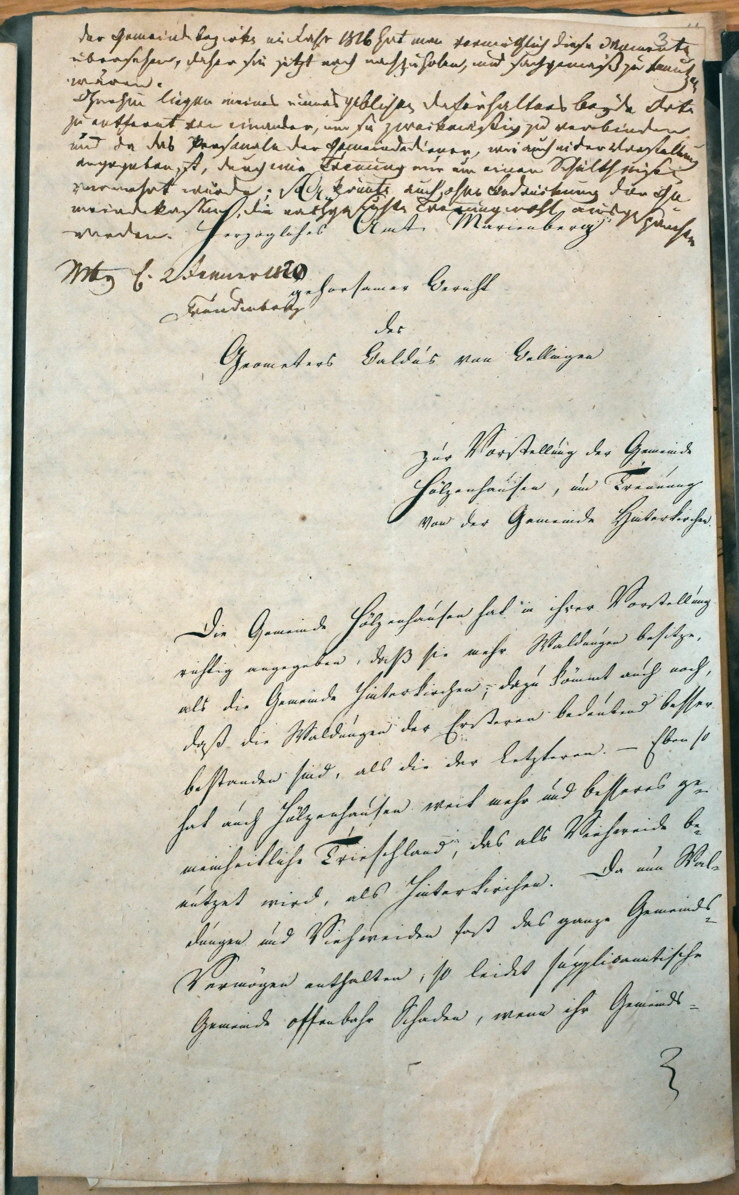 3
der Gemeindsbezirke im Jahr 1816 hat man vermuthlich diese Momente
übersehen, daher sie jetzt noch nachzuholen, und sachgemäß zu
wären.
Ohnehin liegen meines unmaßgeblichen Dafürhaltens beyde Orte
zu entfernt von einander, um sie zweckmäßig zu verbinden
und da das Personale der Gemeindsdiener, wie auch in der Vorstellung
angegeben ist, durch eine Trennung nur um einen Schultheisen
vermehrt würde; so könnte auch ohne Bedrückung der Ge-
meindskassen, die nachgesuchte Trennung wohl ausgesprochen
werden.
Herzogliches Amt Marienberg
Mbg E. 2 Jenner 1820
gehorsamer Bericht
des
Geometers Baldus von Bellingen
zur Vorstellung der Gemeinde
Hölzenhausen, um Trennung
von der Gemeinde Hinterkirchen.
Die Gemeinde Hölzenhausen hat in ihrer Vorstellung
richtig angegeben, daß sie mehr Waldungen besitze,
als die Gemeinde Hinterkirchen; dazu kömmt auch noch,
daß die Waldungen der Ersteren bedeutend besser
bestanden sind, als die der Letzteren. — Eben so
hat auch Hölzenhausen weit mehr und besseres ge-
meinheitliche Trieschland, das als Viehweide be-
nutzet wird, als Hinterkirchen. Da nun Wal-
dungen und Viehweiden fast das ganze Gemeinds-
Vermögen enthalten, so leidet supplicantische
Gemeinde offenbahr Schaden, wenn ihr Gemeinds-